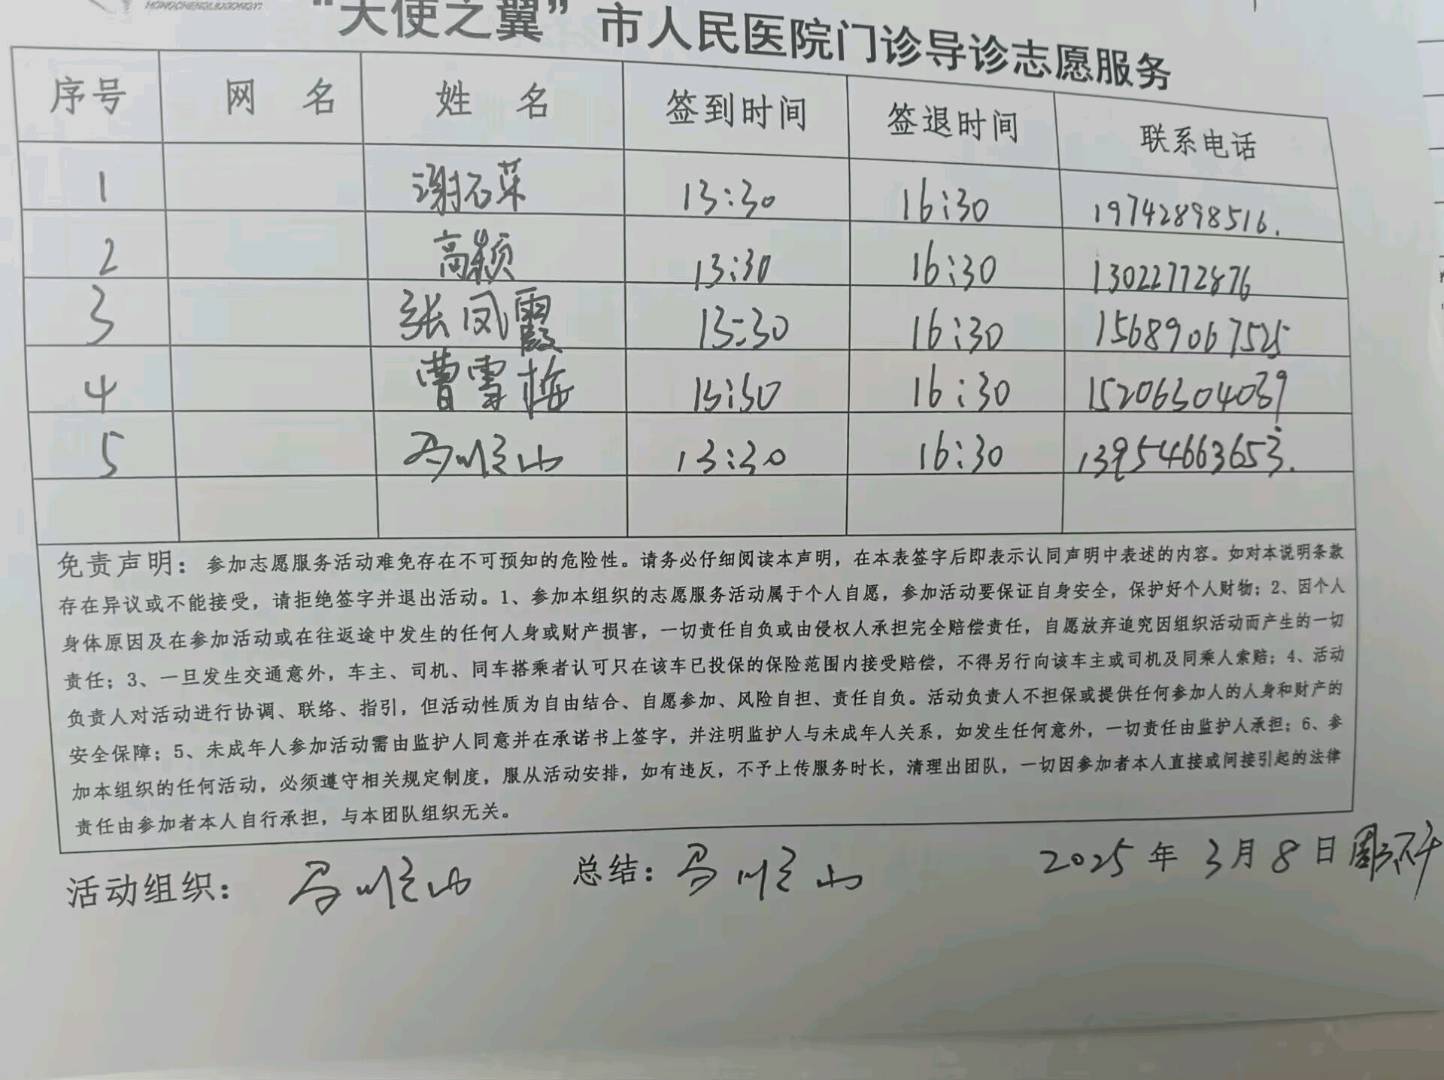 HONGCHENGLIUGONGYI
“天使之翼”市人民医院门诊导诊志愿服务
序号 网 名 姓 名 签到时间 签退时间 联系电话
1 谢石菜 13:30 16:30 19742898516.
2 高颖 13:30 16:30 13022772876
3 张凤霞 13:30 16:30 15689067525
4 曹雪梅 13:30 16:30 15206304039
5 马顺山 13:30 16:30 13954663653.
免责声明：参加志愿服务活动难免存在不可预知的危险性。请务必仔细阅读本声明，在本表签字后即表示认同声明中表述的内容。如对本说明条款
存在异议或不能接受，请拒绝签字并退出活动。1、参加本组织的志愿服务活动属于个人自愿，参加活动要保证自身安全，保护好个人财物；2、因个人
身体原因及在参加活动或在往返途中发生的任何人身或财产损害，一切责任自负或由侵权人承担完全赔偿责任，自愿放弃追究因组织活动而产生的一切
责任；3、一旦发生交通意外，车主、司机、同车搭乘者认可只在该车已投保的保险范围内接受赔偿，不得另行向该车主或司机及同乘人索赔；4、活动
负责人对活动进行协调、联络、指引，但活动性质为自由结合、自愿参加、风险自担、责任自负。活动负责人不担保或提供任何参加人的人身和财产的
安全保障；5、未成年人参加活动需由监护人同意并在承诺书上签字，并注明监护人与未成年人关系，如发生任何意外，一切责任由监护人承担；6、参
加本组织的任何活动，必须遵守相关规定制度，服从活动安排，如有违反，不予上传服务时长，清理出团队，一切因参加者本人直接或间接引起的法律
责任由参加者本人自行承担，与本团队组织无关。
活动组织：马顺山 总结：马顺山 2025年3月8日周六下午